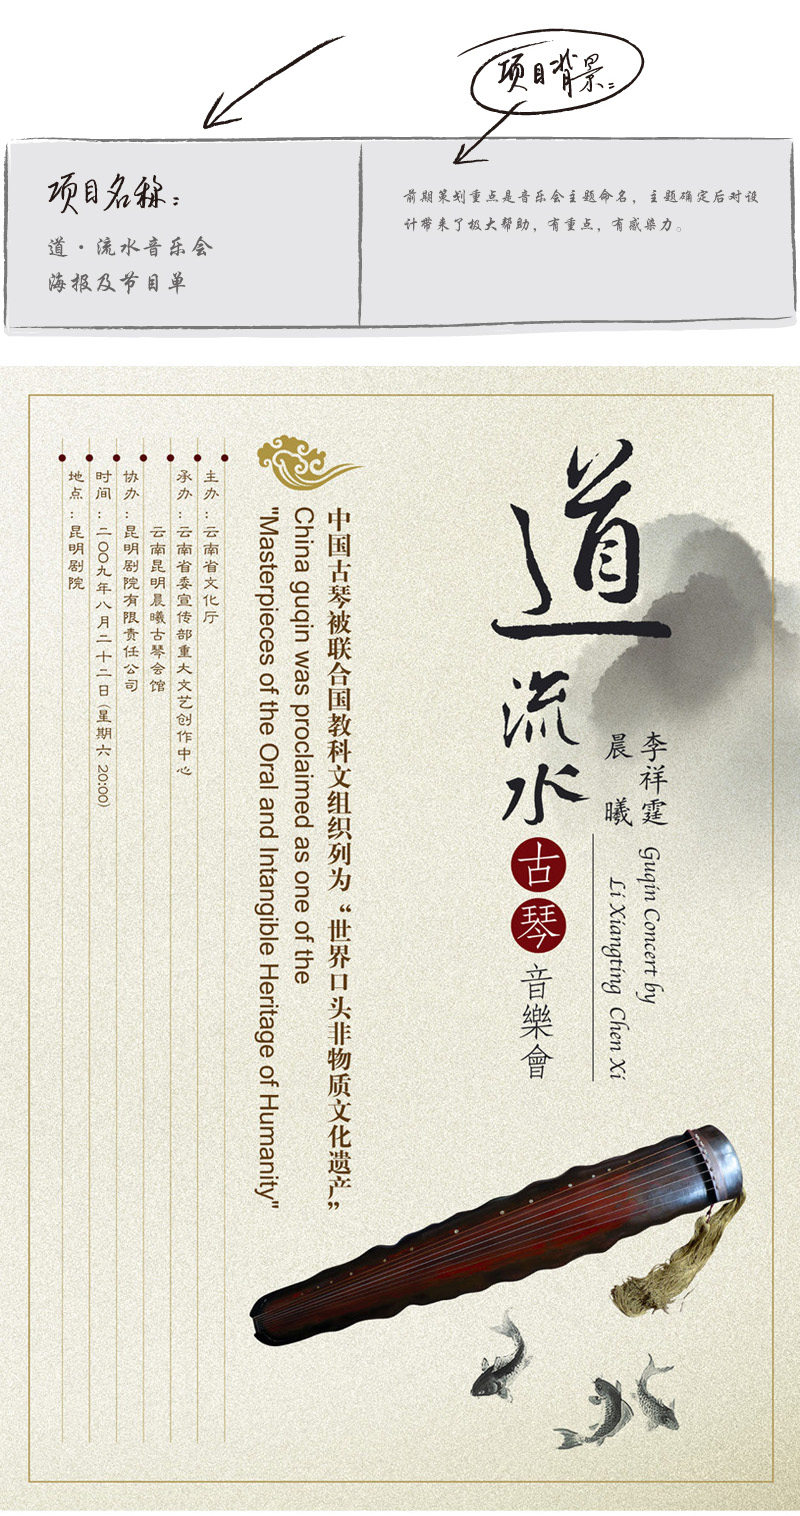 项目背景:
项目名称:
道·流水音乐会
海报及节目单
前期策划重点是音乐会主题命名,主题确定后对设
计带来了极大帮助,有重点,有感染力。
道
流水
古琴
音樂會
李祥霆
晨曦
Guqin Concert by
Li Xiangting Chen Xi
中国古琴被联合国教科文组织列为“世界口头非物质文化遗产”
China guqin was proclaimed as one of the
"Masterpieces of the Oral and Intangible Heritage of Humanity"
主办:云南省文化厅
承办:云南省委宣传部重大文艺创作中心
云南昆明晨曦古琴会馆
协办:昆明剧院有限责任公司
时间:二〇〇九年八月二十二日(星期六 20:00)
地点:昆明剧院